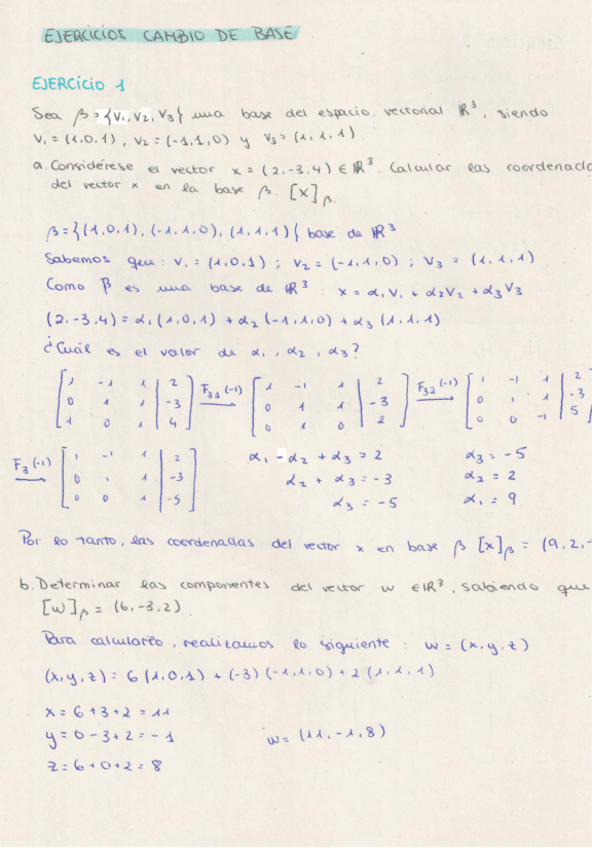 EJERCICIOS CAMBIO DE BASE
EJERCICIO 1
Sea β = {v₁, v₂, v₃} una base del espacio vectorial ℝ³, siendo
v₁ = (1,0,1), v₂ = (-1,1,0) y v₃ = (1,1,1)
a. Considérese el vector x = (2,-3,4) ∈ ℝ³. Calcular las coordenada
del vector x en la base β. [x]β.
β = {(1,0,1), (-1,1,0), (1,1,1)} base de ℝ³
Sabemos que: v₁ = (1,0,1) ; v₂ = (-1,1,0) ; v₃ = (1,1,1)
Como β es una base de ℝ³ : x = α₁v₁ + α₂v₂ + α₃v₃
(2,-3,4) = α₁(1,0,1) + α₂(-1,1,0) + α₃(1,1,1)
¿Cuál es el valor de α₁, α₂, α₃?
[1 -1 1 | 2] F₃₁(-1) [1 -1 1 | 2] F₃₂(-1) [1 -1 1 | 2
[0 1 1 | -3] → [0 1 1 | -3] → [0 1 1 | -3
[1 0 1 | 4] [0 1 0 | 2] [0 0 -1 | 5
F₃(-1) [1 -1 1 | 2] α₁ - α₂ + α₃ = 2 α₃ = -5
→ [0 1 1 | -3] α₂ + α₃ = -3 α₂ = 2
[0 0 1 | -5] α₃ = -5 α₁ = 9
Por lo tanto, las coordenadas del vector x en base β [x]β = (9,2,-
b. Determinar las componentes del vector w ∈ ℝ³, sabiendo que
[w]β = (6,-3,2)
Para calcularlo, realizamos lo siguiente : w = (x,y,z)
(x,y,z) = 6(1,0,1) + (-3)(-1,1,0) + 2(1,1,1)
x = 6+3+2 = 11
y = 0-3+2 = -1 w = (11,-1,8)
z = 6+0+2 = 8